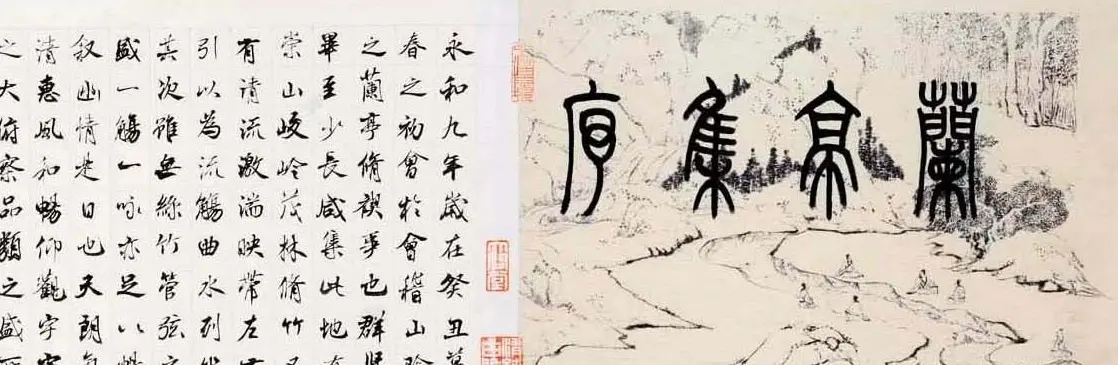 蘭亭集序
永和九年歲在癸丑
春之初會於會稽山
之蘭亭脩禊事也群
畢至少長咸集此地
崇山峻岭茂林脩竹
有清流激湍映帶左
引以為流觴曲水列
其次雖無絲竹管弦
盛一觴一咏亦足以
叙幽情是日也天朗
清惠風和暢仰觀宇
之大俯察品類之盛